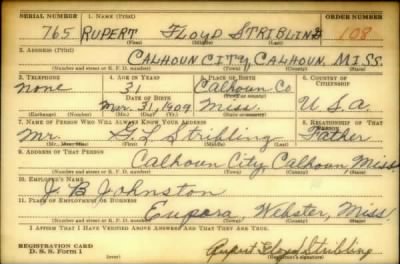 SERIAL NUMBER 1. NAME (Print) ORDER NUMBER
765 RUPERT FLOYD STRIBLING 108
(First) (Middle) (Last)
2. ADDRESS (Print)
CALHOUN CITY, CALHOUN, MISS.
(Number and street or R. F. D. number) (Town) (County) (State)
3. TELEPHONE 4. AGE IN YEARS 5. PLACE OF BIRTH 6. COUNTRY OF CITIZENSHIP
none 31 Calhoun Co
DATE OF BIRTH
Mar. 31, 1909 Miss. U S A
(Exchange) (Number) (Mo.) (Day) (Yr.) (State or country)
7. NAME OF PERSON WHO WILL ALWAYS KNOW YOUR ADDRESS 8. RELATIONSHIP OF THAT PERSON
Mr. Stribling Father
(Mr., Mrs., Miss) (First) (Middle) (Last)
9. ADDRESS OF THAT PERSON
Calhoun City, Calhoun, Miss
(Number and street or R. F. D. number) (Town) (County) (State)
10. EMPLOYER'S NAME
J. B Johnston
11. PLACE OF EMPLOYMENT OR BUSINESS
Eupora, Webster, Miss
(Number and street or R. F. D. number) (Town) (County) (State)
I AFFIRM THAT I HAVE VERIFIED ABOVE ANSWERS AND THAT THEY ARE TRUE.
REGISTRATION CARD
D. S. S. Form 1 Rupert Floyd Stribling
(Registrant's signature)